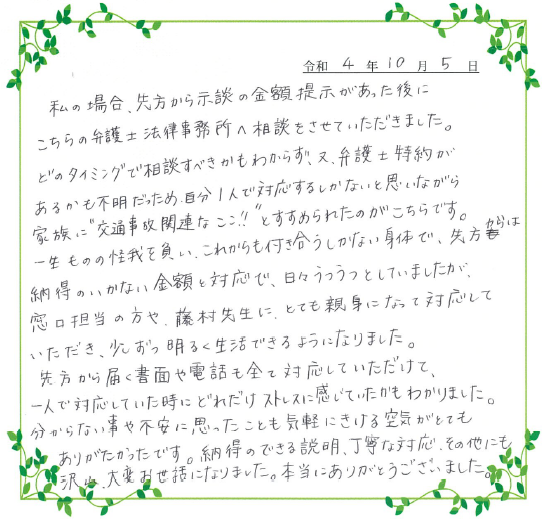 令和 4 年 10 月 5 日
私の場合、先方から示談の金額提示があった後に
こちらの弁護士法律事務所へ相談をさせていただきました。
どのタイミングで相談すべきかもわからず、又、弁護士特約が
あるかも不明だっため、自分1人で対応するしかないと思いながら
家族に"交通事故関連なここ!!"とすすめられたのがこちらです。
一生ものの怪我を負い、これからも付き合うしかない身体で、先方からは
納得のいかない金額と対応で、日々うつうつとしていましたが、
窓口担当の方や、藤村先生に、とても親身になって対応して
いただき、少しずつ明るく生活できるようになりました。
先方から届く書面や電話も全て対応していただけて、
一人で対応していた時にどれだけストレスに感じていたかもわかりました。
分からない事や不安に思ったことも気軽にきける空気がとても
ありがたかったです。納得のできる説明、丁寧な対応、その他にも
沢山、大変お世話になりました。本当にありがとうございました。